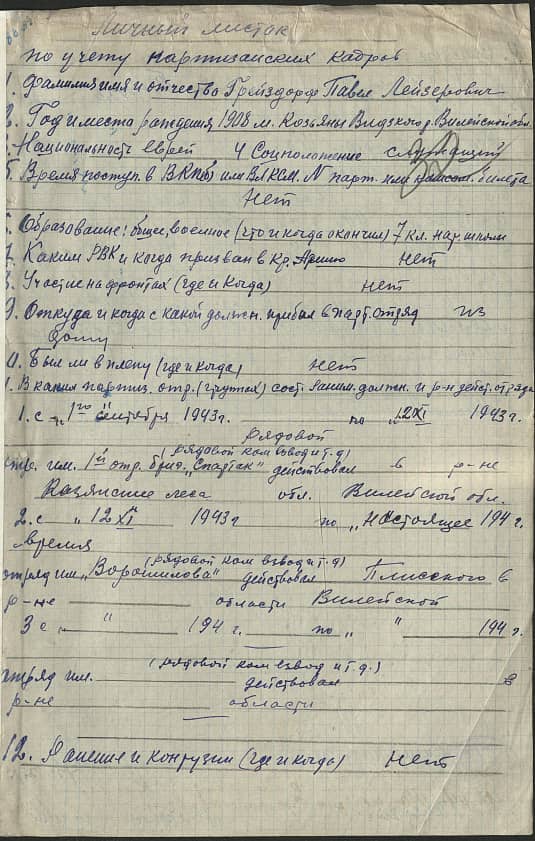 Личный листок
по учету партизанских кадров
1. Фамилия имя и отчество Грейздорф Павел Лейзерович
2. Год и место рождения 1908 м. Козьяны Видзского р. Вилейской обл.
Национальность еврей 4 Соцположение служащий
5. Время поступ. в ВКП(б) или ВЛКСМ. № парт. или комсом. билета
Нет
Образование: общее, военное (что и когда окончил) 7 кл. нар. школы
7. Каким РВК и когда призван в Кр. Армию нет
Участие на фронтах (где и когда) нет
9. Откуда и когда с какой должн. прибыл в парт. отряд из
дому
Был ли в плену (где и когда) нет
В каких партиз. отр. состоял заним. должн. и р-н дейст. отряда
1. с „1го" сентября 1943 г. по „12 XI 1943 г.
рядовой
(рядовой ком взвод и т. д)
отр. им. 1й отр. бриг. „Спартак" действовал в р-не
Казянские леса обл. Вилейской обл.
2. с „ 12 XI 1943 г по „Настоящее 194 г.
время
(рядовой ком взвод и т. д)
отряд им „Ворошилова" действовал Плисского в
р-не области Вилейской
3 с „ " 194 г. по „ " 194 г.
(рядовой ком взвод и т. д.)
отряд им. действовал в
р-не области
12. Ранение и контузии (где и когда) нет